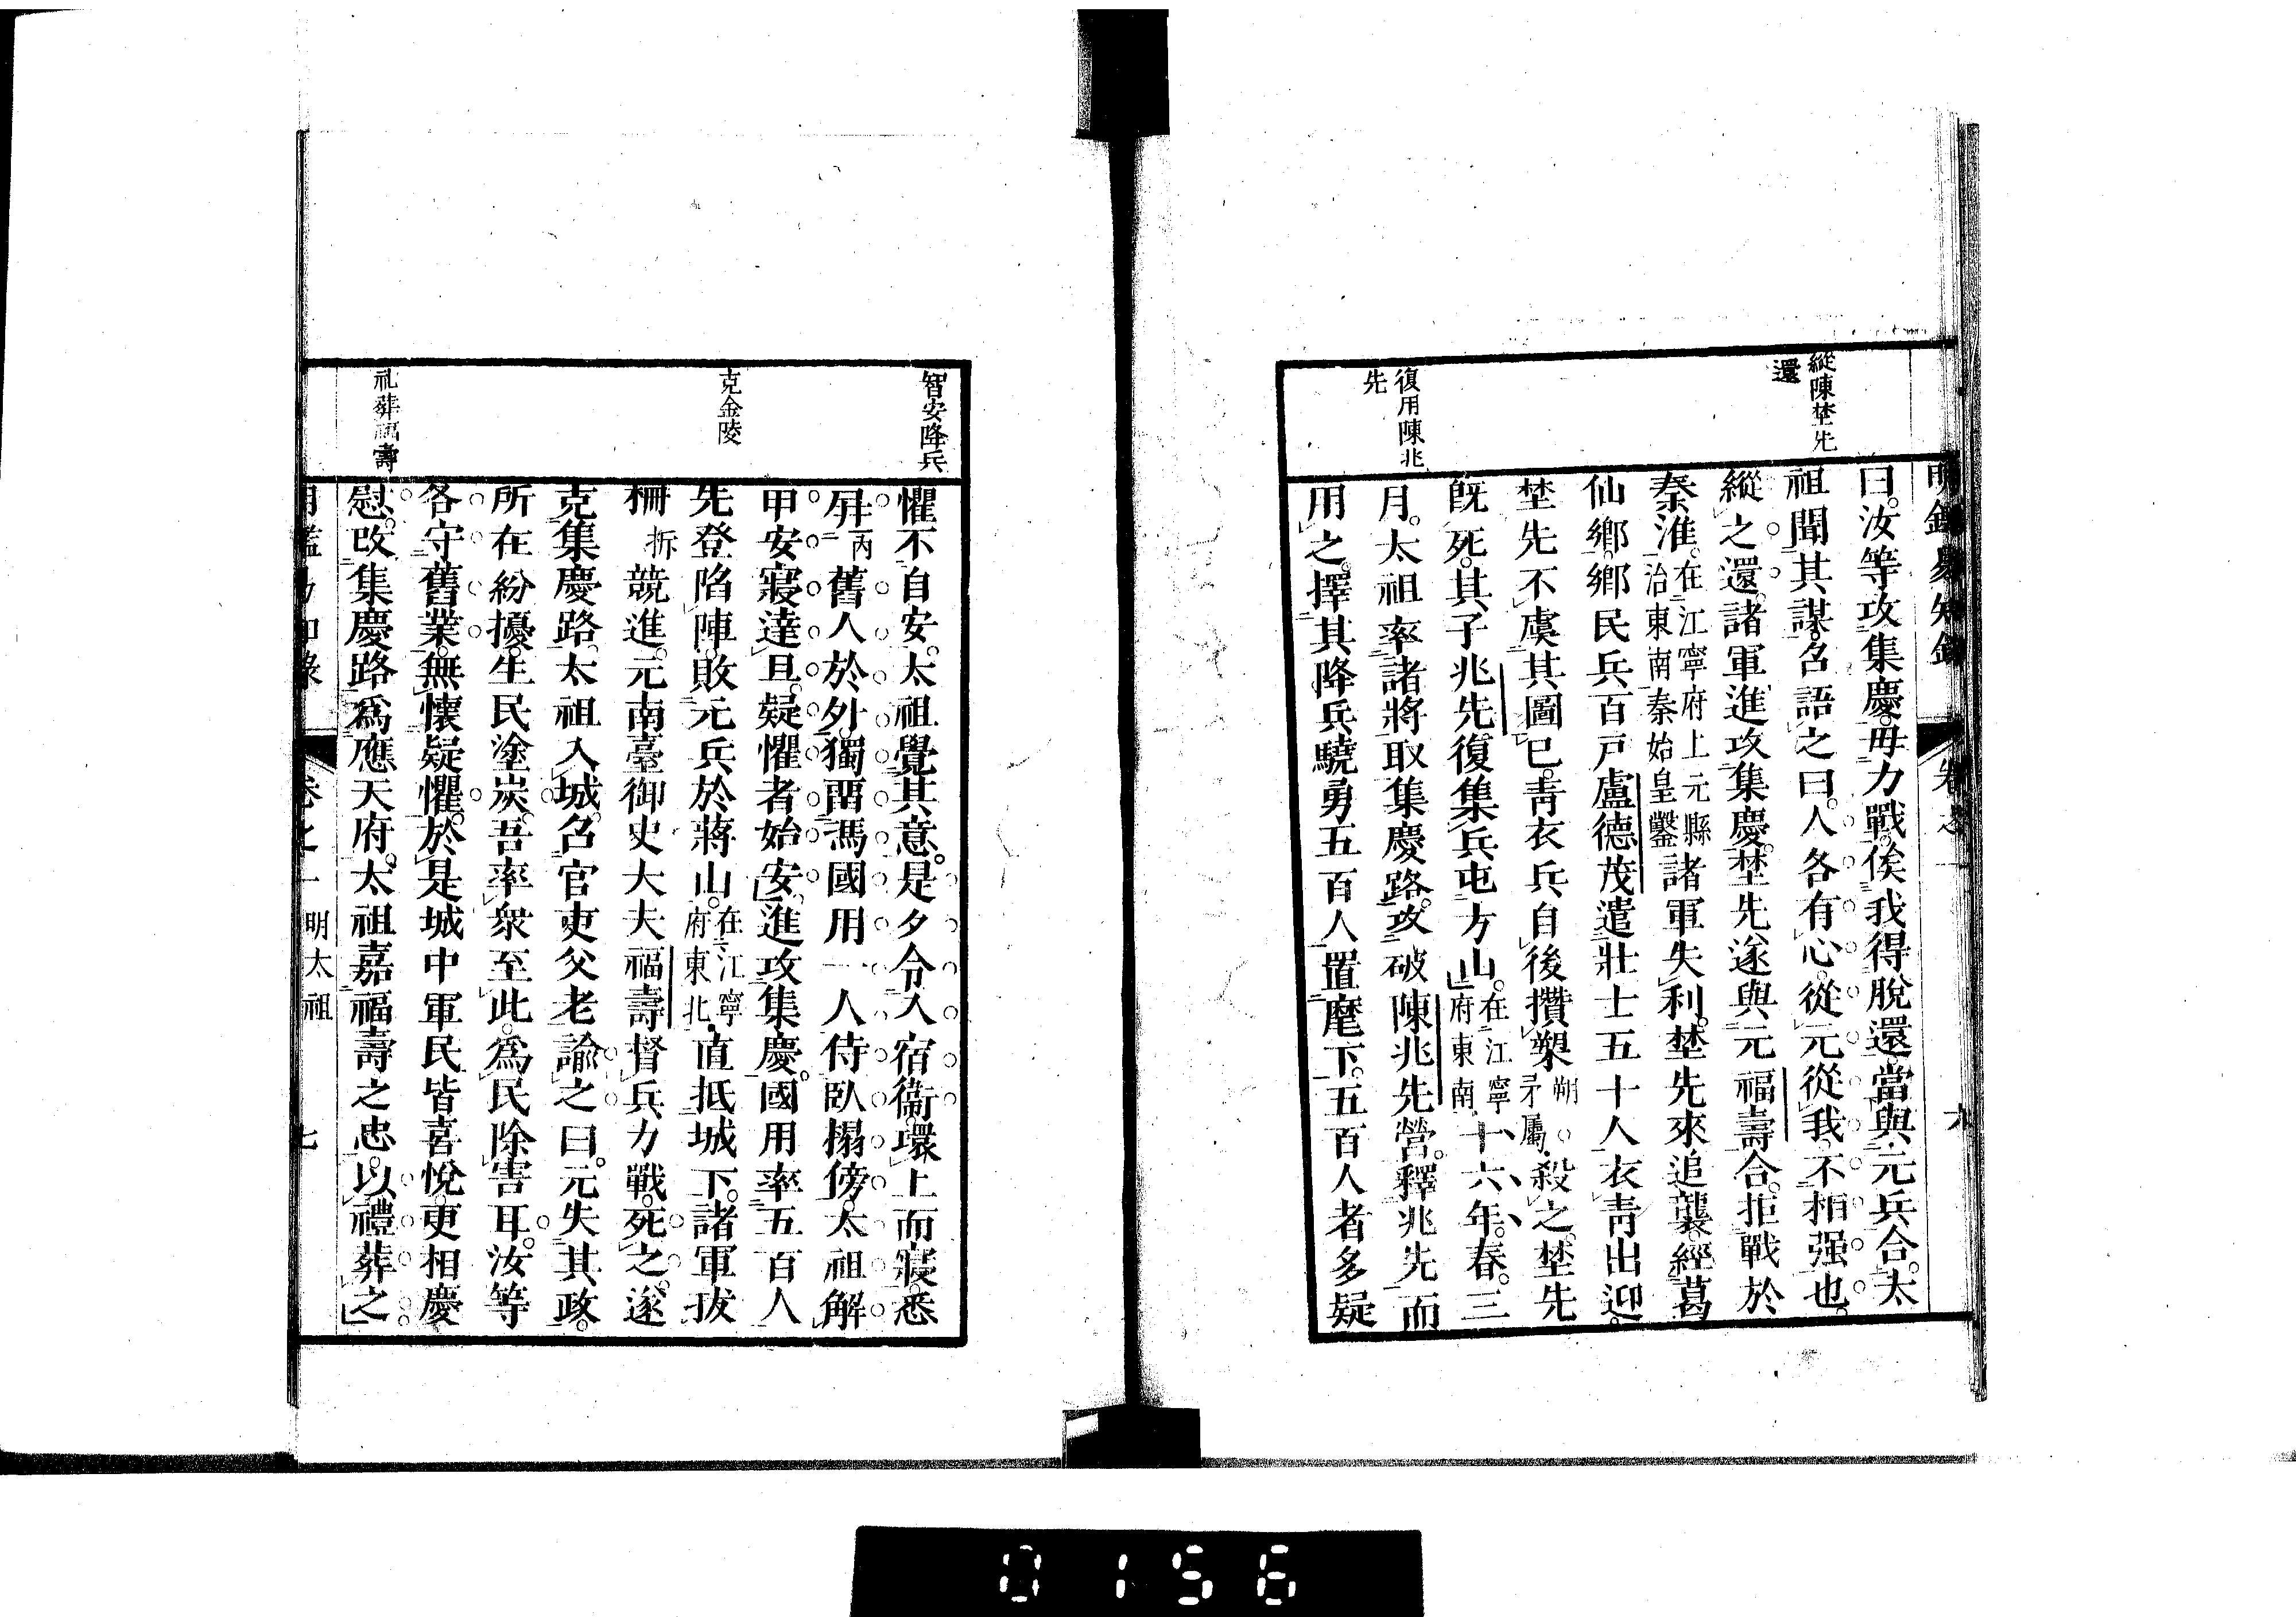 縱陳埜先
還
復用陳兆
先
曰汝等攻集慶毋力戰俟我得脫還當與元兵合太
祖聞其謀召語之曰人各有心從元從我不相强也
縱之還諸軍進攻集慶埜先遂與元福壽合拒戰於
秦淮在江寧府上元縣治東南秦始皇鑿諸軍失利埜先來追襲經葛
仙鄉鄉民兵百戸盧德茂遣壯士五十人衣靑出迎
埜先不虞其圖已靑衣兵自後攢槊朔矛屬殺之埜先
旣死其子兆先復集兵屯方山在江寧府東南十六年春三
月太祖率諸將取集慶路攻破陳兆先營釋兆先而
用之擇其降兵驍勇五百人置麾下五百人者多疑
智安降兵
克金陵
礼葬福壽
懼不自安太祖覺其意是夕令入宿衞環上而寢悉
屛丙舊人於外獨畱馮國用一人侍臥榻傍太祖解
甲安寢達旦疑懼者始安進攻集慶國用率五百人
先登陷陣敗元兵於蔣山在江寧府東北直抵城下諸軍拔
柵拆競進元南臺御史大夫福壽督兵力戰死之遂
克集慶路太祖入城召官吏父老諭之曰元失其政
所在紛擾生民塗炭吾率衆至此爲民除害耳汝等
各守舊業無懷疑懼於是城中軍民皆喜悅更相慶
慰改集慶路爲應天府太祖嘉福壽之忠以禮葬之
卷之一 明太祖 七
0156